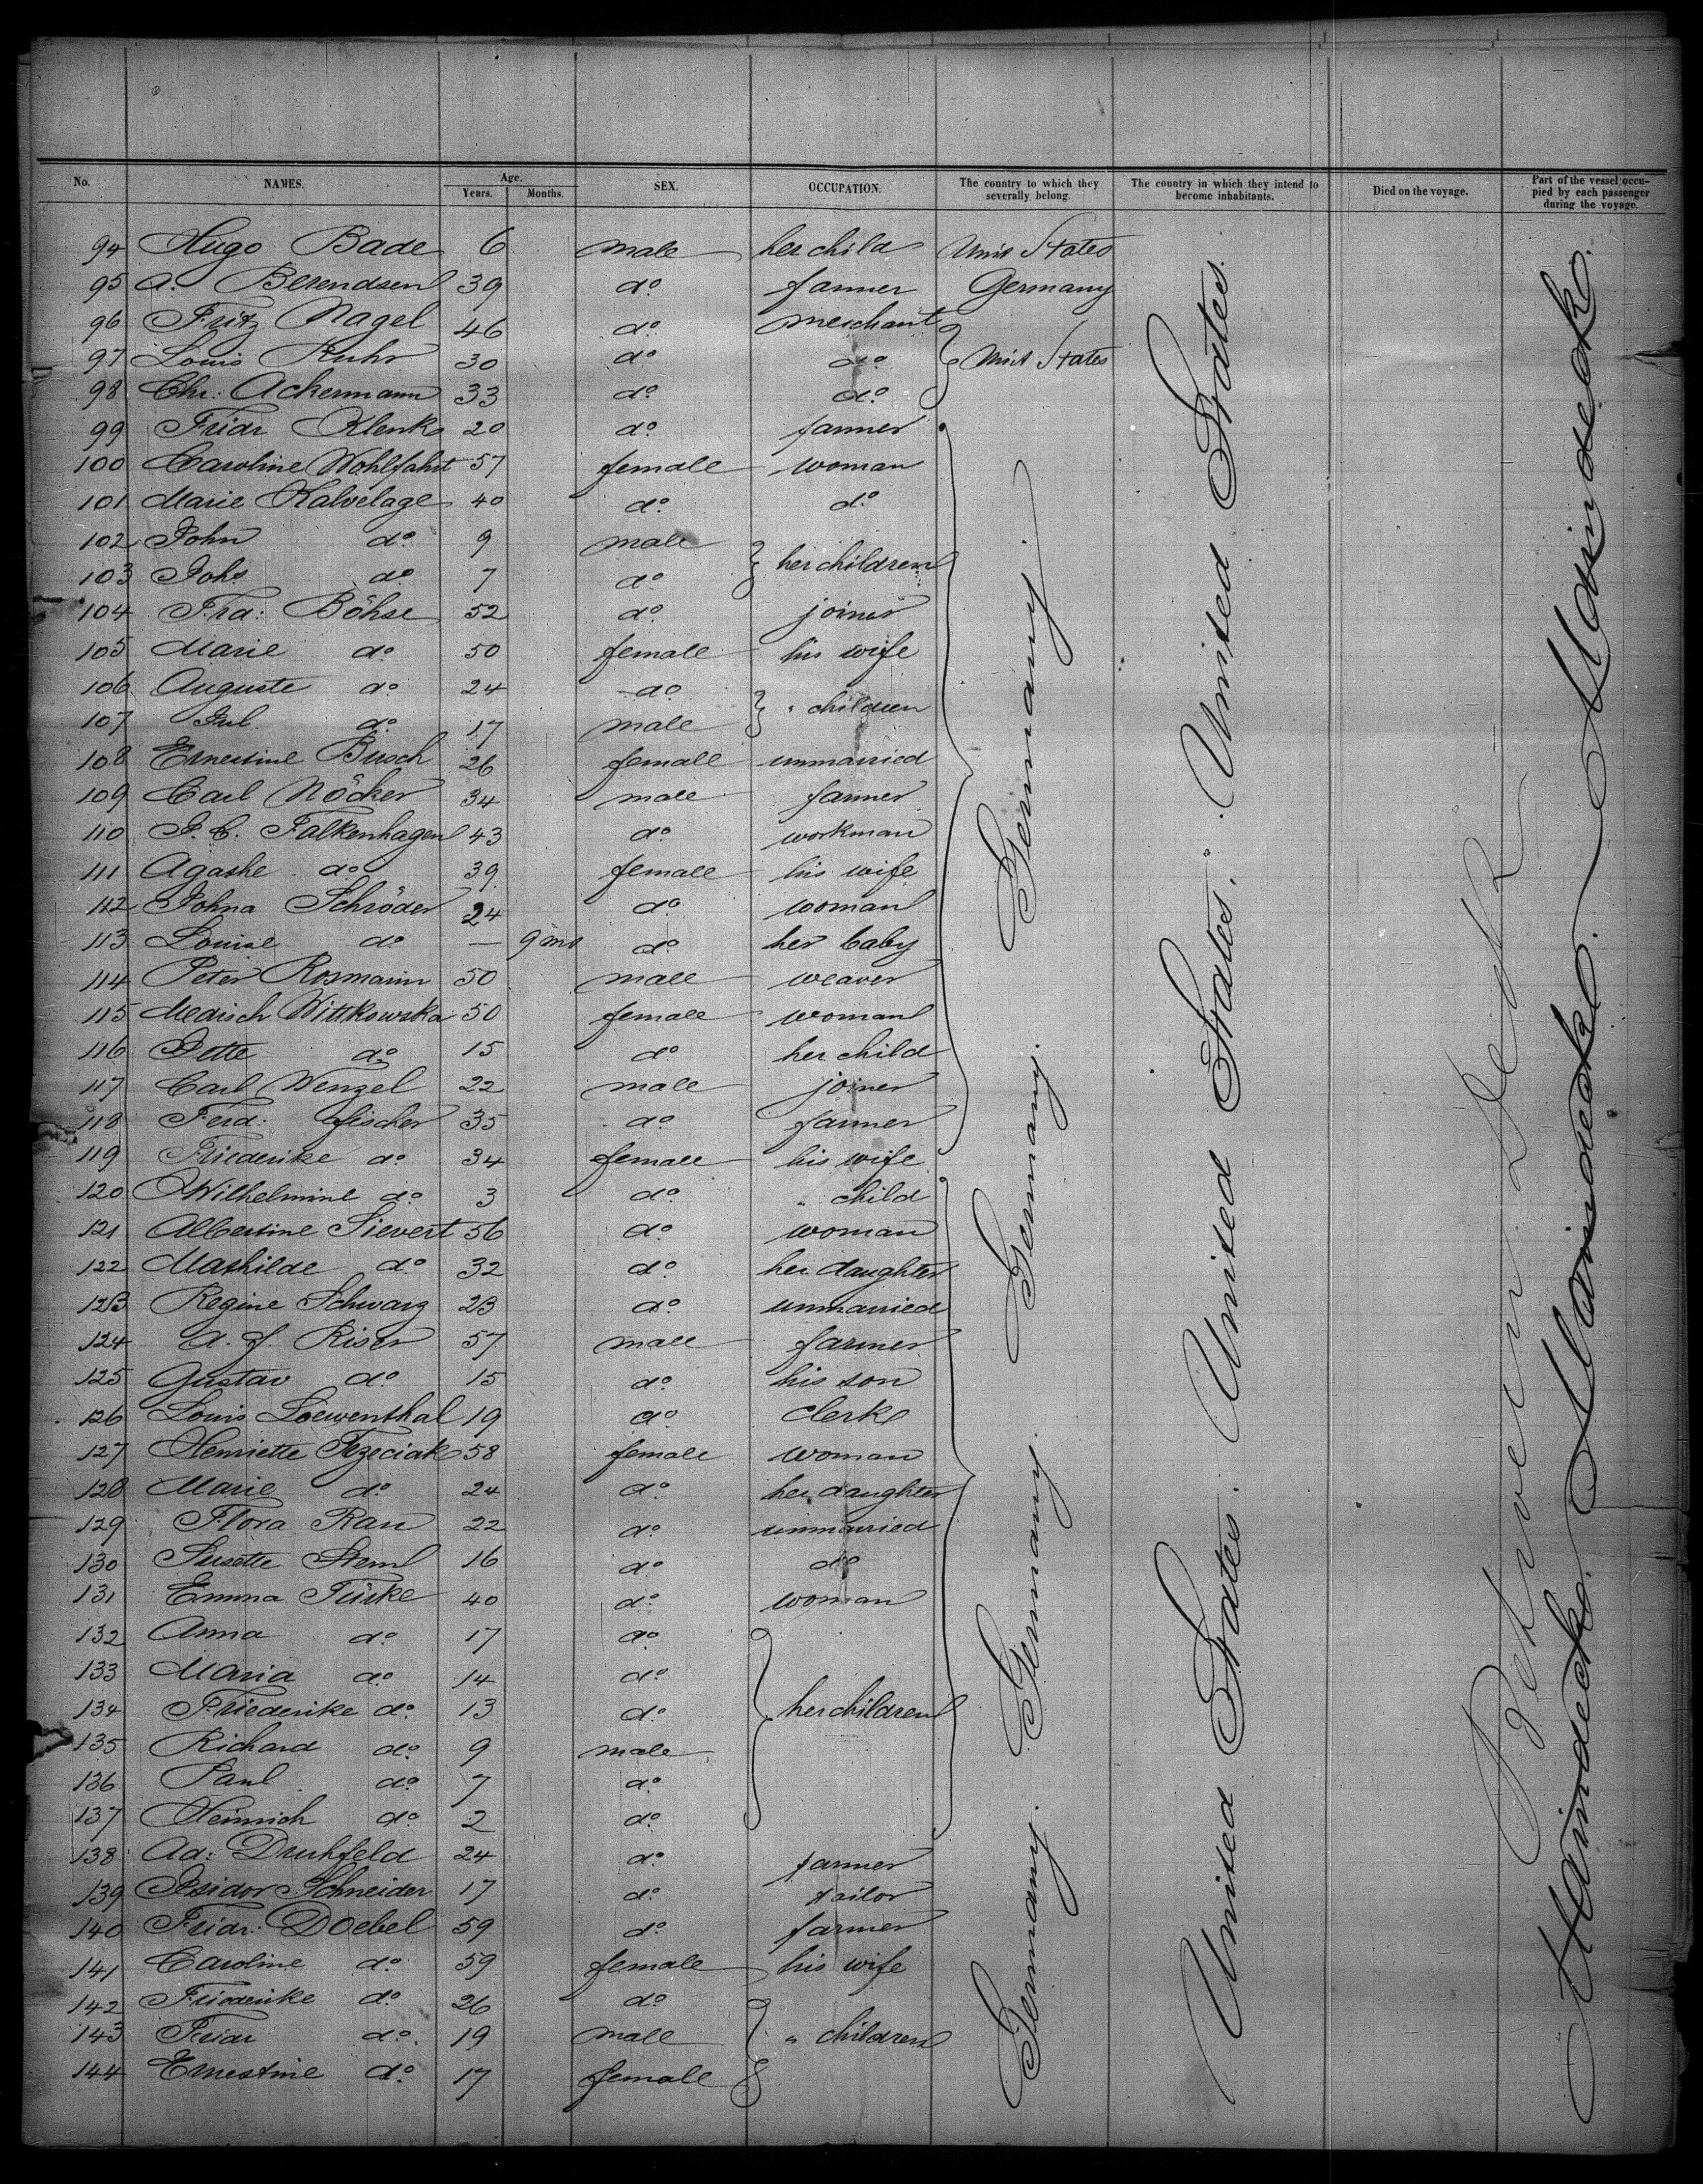 No. NAMES. Age. Years. Months. SEX. OCCUPATION. The country to which they severally belong. The country in which they intend to become inhabitants. Died on the voyage. Part of the vessel occupied by each passenger during the voyage.
94 Hugo Bade 6 male her child Unit States
95 A. Berendsen 39 do farmer Germany
96 Fritz Nagel 46 do merchant
97 Louis Ruhr 30 do do Unit States
98 Chr: Ackermann 33 do do
99 Fridr Klenke 20 do farmer
100 Caroline Wohlfahrt 57 female woman
101 Marie Kalvelage 40 do do
102 John do 9 male
her children
103 Johs do 7 do
104 Frd: Böhse 52 do joiner
105 Marie do 50 female his wife
106 Auguste do 24 do
" children
107 Jul do 17 male
108 Ernestine Busch 26 female unmarried
109 Carl Nöcker 34 male farmer
110 J. C. Falkenhagen 43 do workman
111 Agathe do 39 female his wife
112 Johna Schröder 24 do woman
113 Louise do — 9 ms do her baby
114 Peter Rosmann 50 male weaver
115 Wittkowska 50 female woman
116 Jette do 15 do her child
117 Carl Wenzel 22 male joiner
118 Ferd: Fischer 35 do farmer
119 Friederike do 34 female his wife
120 Wilhelmine do 3 do " child
121 Albertine Sievert 56 do woman
122 Mathilde do 32 do her daughter
123 Regine Schwarz 23 do unmarried
124 A. F. Riser 57 male farmer
125 Gustav do 15 do his son
126 Louis Loewenthal 19 do clerk
127 Henriette 58 female woman
128 Marie do 24 do her daughter
129 Flora Rau 22 do unmarried
130 Susette 16 do do
131 Emma Türke 40 do woman
132 Anna do 17 do
133 Maria do 14 do
134 Friederike do 13 do her children
135 Richard do 9 male
136 Paul do 7 do
137 Heinrich do 2 do
138 Ad: Druhfeld 24 do farmer
139 Isidor Schneider 17 do tailor
140 Fridr: Doebel 59 do farmer
141 Caroline do 59 female his wife
142 Friederike do 26 do
143 Fridr do 19 male " children
144 Ernestine do 17 female
Germany. Germany. Germany. Germany.
United States. United States. United States.
Between Deck
Maindeck. Maindeck. Maindeck.